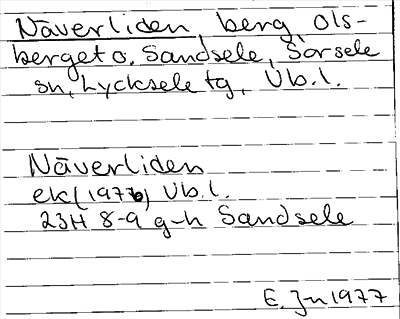 Näverliden, berg, Ols-
berget o. Sandsele, Sorsele
sn, Lycksele tg, Vb.l.
Näverliden
ek (1976) Vb.l.
23H 8-9 g-h Sandsele
E. Jn 1977